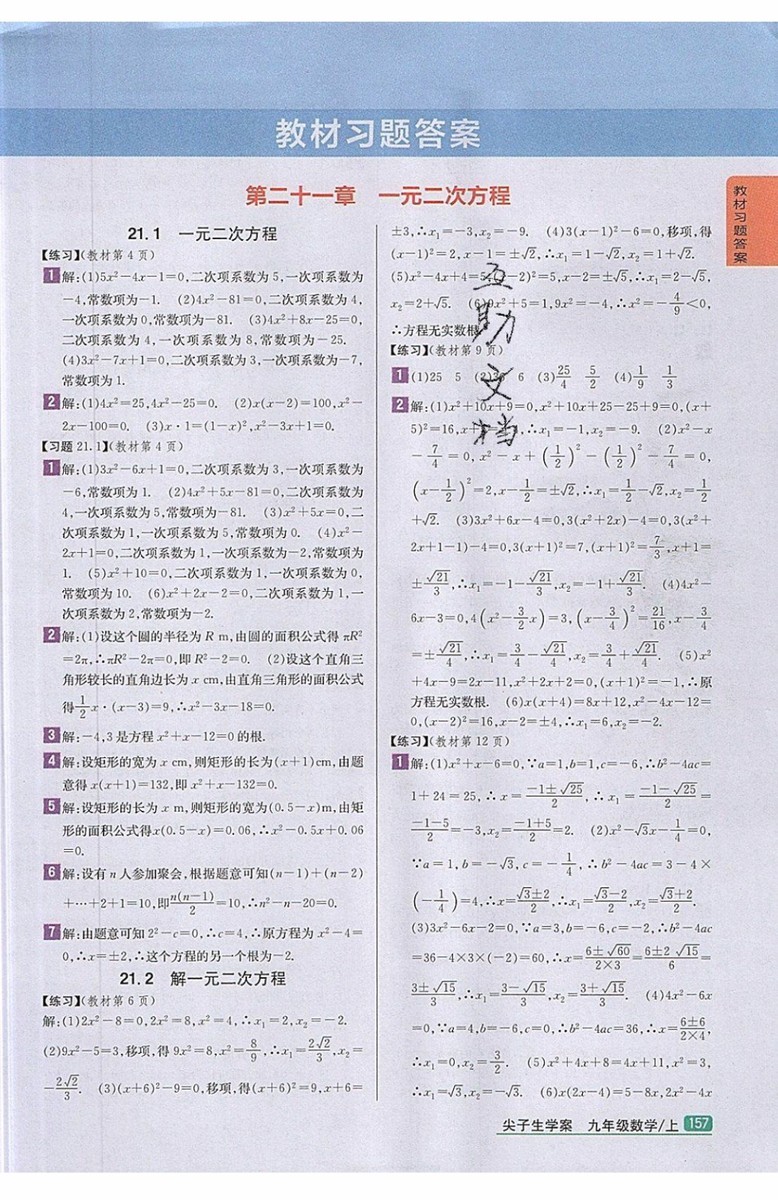 教材习题答案
第二十一章 一元二次方程
教材习题答案
21.1 一元二次方程
【练习】(教材第4页)
1 解:(1)5x²-4x-1=0,二次项系数为5,一次项系数为
-4,常数项为-1. (2)4x²-81=0,二次项系数为4,
一次项系数为0,常数项为-81. (3)4x²+8x-25=0,
二次项系数为4,一次项系数为8,常数项为-25.
(4)3x²-7x+1=0,二次项系数为3,一次项系数为-7,
常数项为1.
2 解:(1)4x²=25,4x²-25=0. (2)x(x-2)=100,x²-
2x-100=0. (3)x·1=(1-x)²,x²-3x+1=0.
【习题21.1】(教材第4页)
1 解:(1)3x²-6x+1=0,二次项系数为3,一次项系数为
-6,常数项为1. (2)4x²+5x-81=0,二次项系数为
4,一次项系数为5,常数项为-81. (3)x²+5x=0,二
次项系数为1,一次项系数为5,常数项为0. (4)x²-
2x+1=0,二次项系数为1,一次项系数为-2,常数项为
1. (5)x²+10=0,二次项系数为1,一次项系数为0,
常数项为10. (6)x²+2x-2=0,二次项系数为1,一
次项系数为2,常数项为-2.
2 解:(1)设这个圆的半径为R m,由圆的面积公式得πR²
=2π,∴πR²-2π=0,即R²-2=0. (2)设这个直角三
角形较长的直角边长为x cm,由直角三角形的面积公式
得1/2x·(x-3)=9,∴x²-3x-18=0.
3 解:-4,3是方程x²+x-12=0的根.
4 解:设矩形的宽为x cm,则矩形的长为(x+1)cm,由题
意得x(x+1)=132,即x²+x-132=0.
5 解:设矩形的长为x m,则矩形的宽为(0.5-x)m,由矩
形的面积公式得x(0.5-x)=0.06,∴x²-0.5x+0.06
=0.
6 解:设有n人参加聚会,根据题意可知(n-1)+(n-2)
+…+2+1=10,即n(n-1)/2=10,∴n²-n-20=0.
7 解:由题意可知2²-c=0,∴c=4,∴原方程为x²-4=
0,∴x=±2,∴这个方程的另一个根为-2.
21.2 解一元二次方程
【练习】(教材第6页)
解:(1)2x²-8=0,2x²=8,x²=4,∴x₁=2,x₂=-2.
(2)9x²-5=3,移项,得9x²=8,x²=8/9,∴x₁=2√2/3,x₂=
-2√2/3. (3)(x+6)²-9=0,移项,得(x+6)²=9,x+6=
±3,∴x₁=-3,x₂=-9. (4)3(x-1)²-6=0,移项,得
(x-1)²=2,x-1=±√2,∴x₁=1-√2,x₂=1+√2.
(5)x²-4x+4=5,(x-2)²=5,x-2=±√5,∴x₁=2-√5,
x₂=2+√5. (6)9x²+5=1,9x²=-4,∴x²=-4/9<0,
∴方程无实数根.
互助文档
【练习】(教材第9页)
1 (1)25 5 (2)36 6 (3)25/4 5/2 (4)1/9 1/3
2 解:(1)x²+10x+9=0,x²+10x+25-25+9=0,(x+
5)²=16,x+5=±4,∴x₁=-1,x₂=-9. (2)x²-x
-7/4=0,x²-x+(1/2)²-(1/2)²-7/4=0,
(x-1/2)²=2,x-1/2=±√2,∴x₁=1/2-√2,x₂=1/2
+√2. (3)3x²+6x-4=0,3(x²+2x)-4=0,3(x²+
2x+1-1)-4=0,3(x+1)²=7,(x+1)²=7/3,x+1=
±√21/3,∴x₁=-1-√21/3,x₂=-1+√21/3. (4)4x²-
6x-3=0,4(x²-3/2x)=3,(x-3/4)²=21/16,x-3/4
=±√21/4,∴x₁=3/4-√21/4,x₂=3/4+√21/4. (5)x²
+4x-9=2x-11,x²+2x+2=0,(x+1)²=-1,∴原
方程无实数根. (6)x(x+4)=8x+12,x²-4x-12=
0,(x-2)²=16,x-2=±4,∴x₁=6,x₂=-2.
【练习】(教材第12页)
1 解:(1)x²+x-6=0,∵a=1,b=1,c=-6,∴b²-4ac=
1+24=25,∴x=-1±√25/2,∴x₁=-1-√25/2=
-1-5/2=-3,x₂=-1+5/2=2. (2)x²-√3x-1/4=0,
∵a=1,b=-√3,c=-1/4,∴b²-4ac=3-4×
(-1/4)=4,∴x=√3±2/2,∴x₁=√3-2/2,x₂=√3+2/2.
(3)3x²-6x-2=0,∵a=3,b=-6,c=-2,∴b²-4ac
=36-4×3×(-2)=60,∴x=6±√60/2×3=6±2√15/6=
3±√15/3,∴x₁=3-√15/3,x₂=3+√15/3. (4)4x²-6x
=0,∵a=4,b=-6,c=0,∴b²-4ac=36,∴x=6±6/2×4,
∴x₁=0,x₂=3/2. (5)x²+4x+8=4x+11,x²=3,
∴x₁=√3,x₂=-√3. (6)x(2x-4)=5-8x,2x²-4x
尖子生学案 九年级数学/上 157